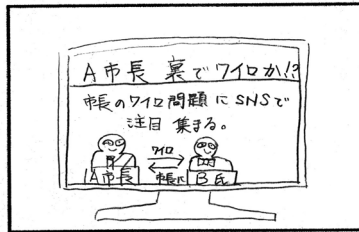 A市長 裏でワイロか!?
市長のワイロ問題にSNSで
注目 集まる。
ワイロ
A市長 市長に B氏